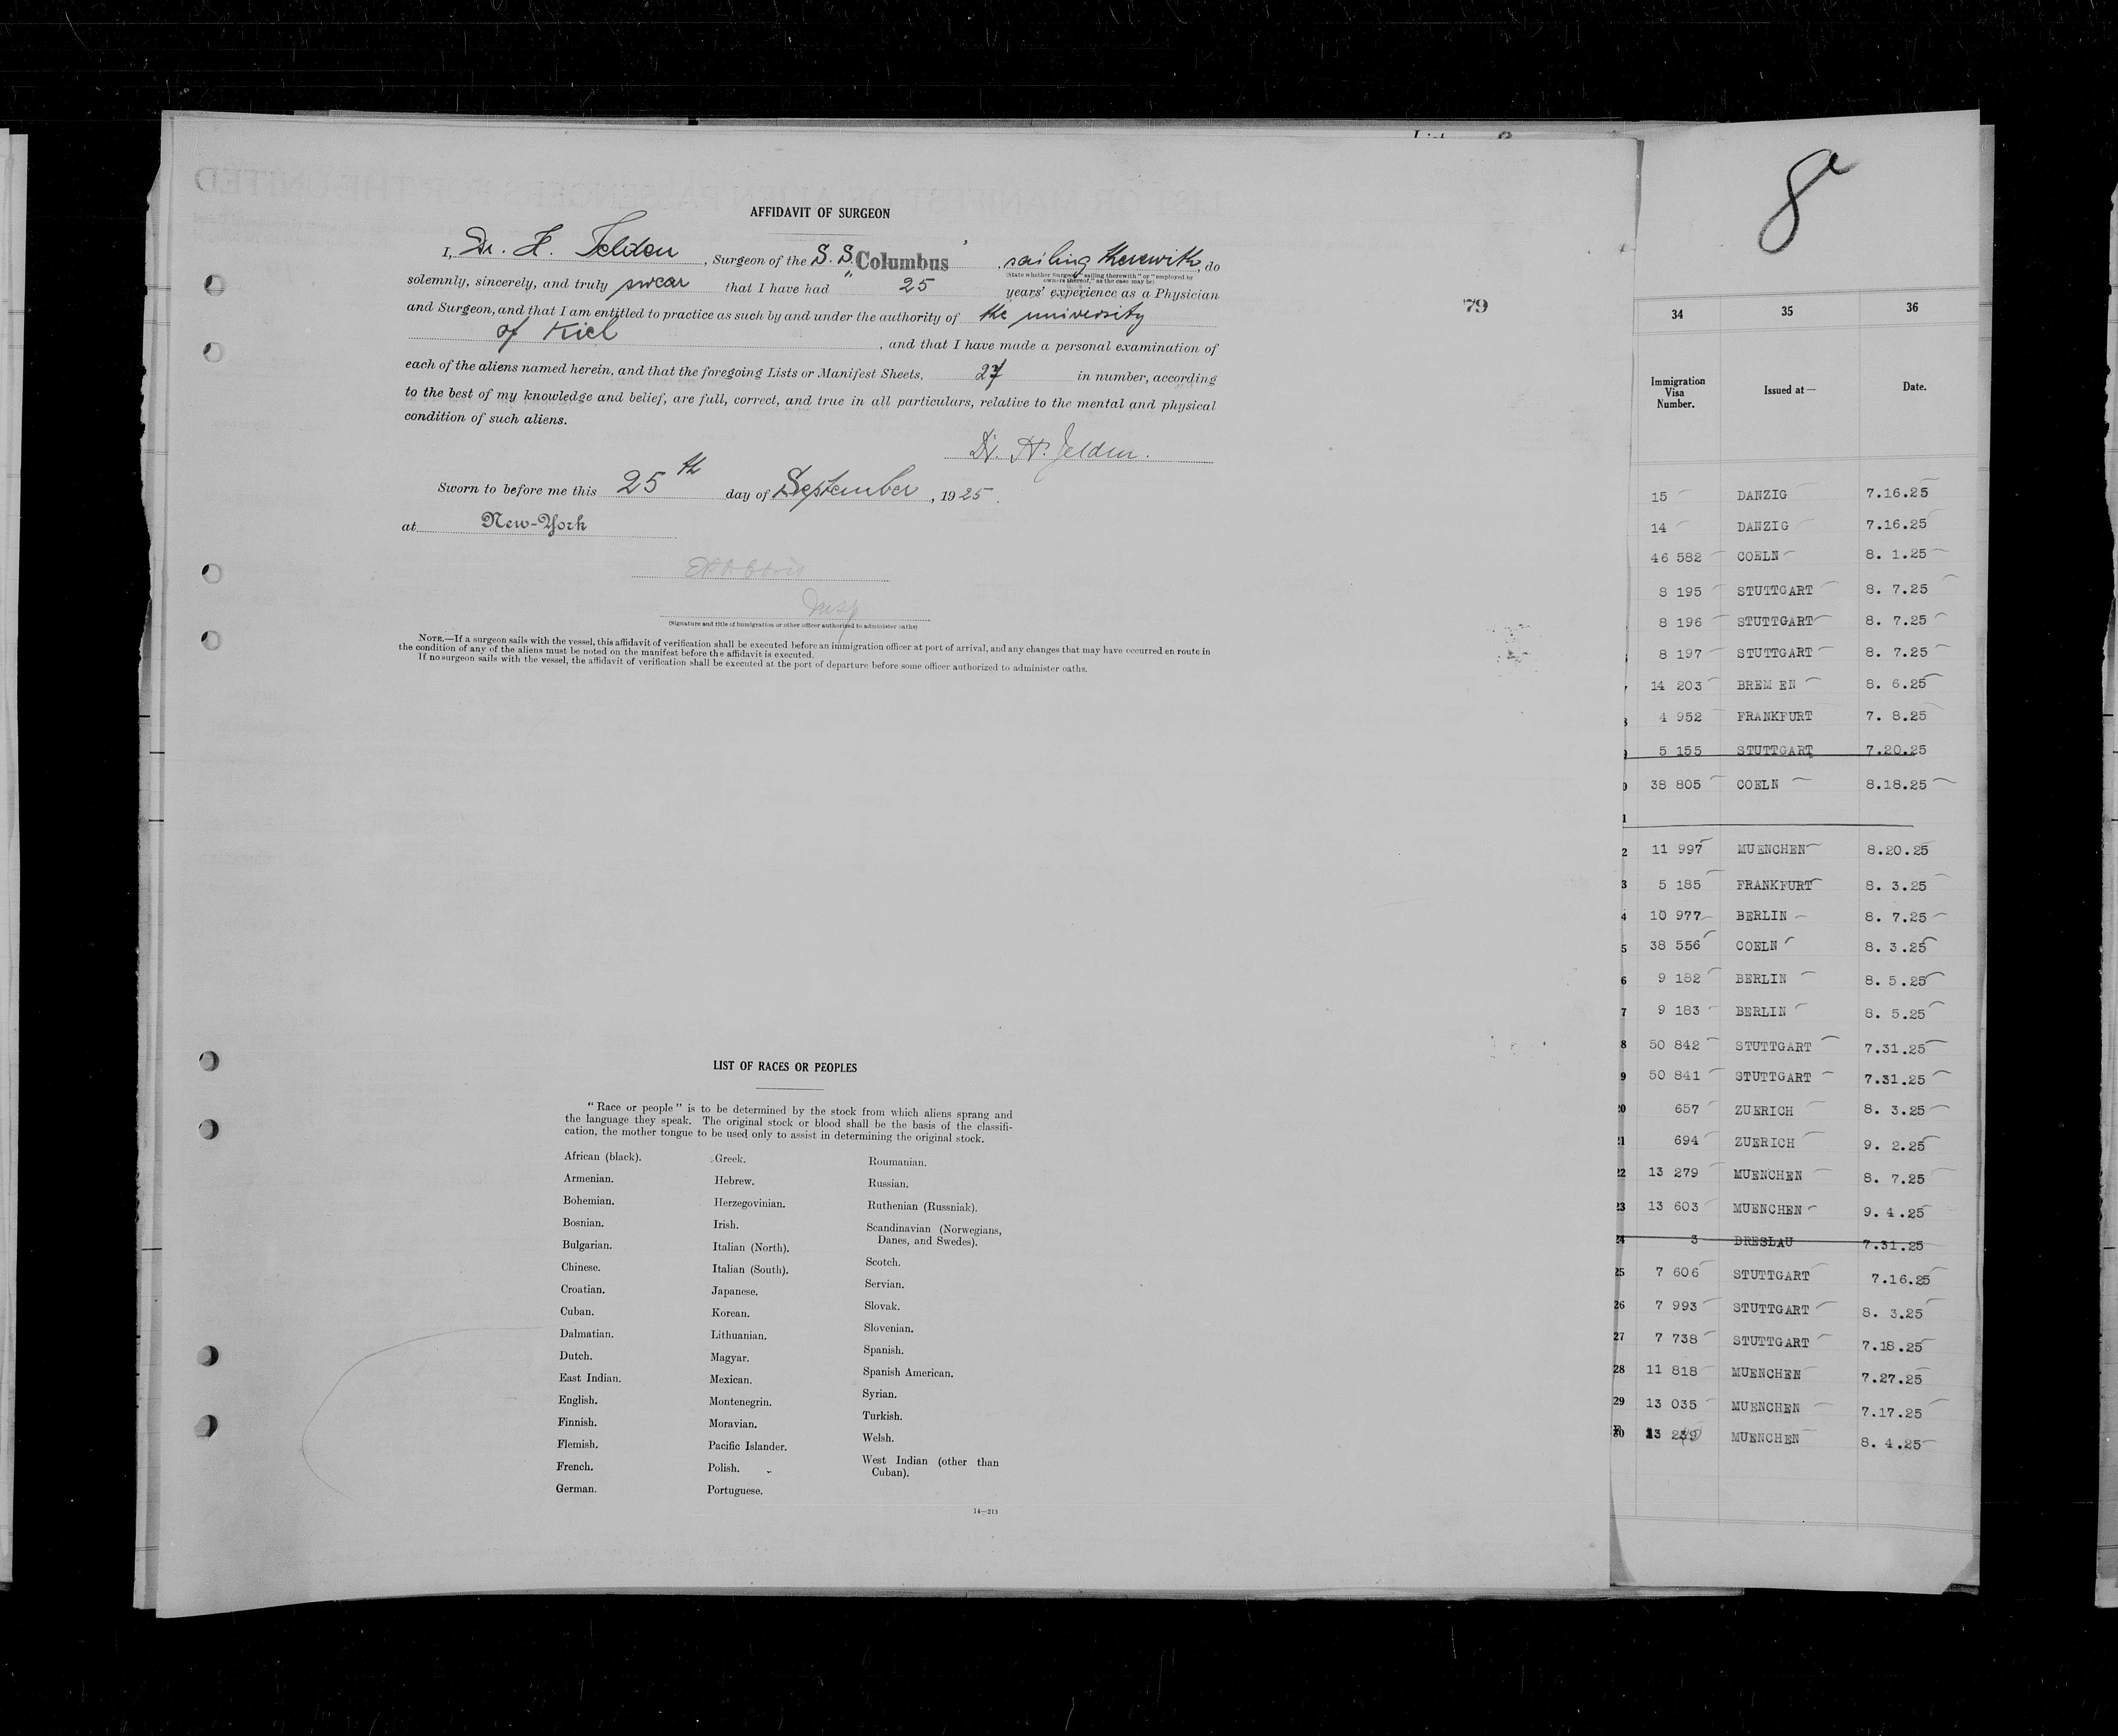 8a
79
AFFIDAVIT OF SURGEON
I, Dr. H. Jelden, Surgeon of the S. S. "Columbus", sailing therewith, do
(State whether Surgeon "sailing therewith" or "employed by
owners thereof," as the case may be)
solemnly, sincerely, and truly swear that I have had 25 years' experience as a Physician
and Surgeon, and that I am entitled to practice as such by and under the authority of the university
of Kiel, and that I have made a personal examination of
each of the aliens named herein, and that the foregoing Lists or Manifest Sheets, 27 in number, according
to the best of my knowledge and belief, are full, correct, and true in all particulars, relative to the mental and physical
condition of such aliens.
Dr. H. Jelden.
Sworn to before me this 25th day of September, 1925.
at New-York
Insp
(Signature and title of immigration or other officer authorized to administer oaths)
NOTE.—If a surgeon sails with the vessel, this affidavit of verification shall be executed before an immigration officer at port of arrival, and any changes that may have occurred en route in
the condition of any of the aliens must be noted on the manifest before the affidavit is executed.
If no surgeon sails with the vessel, the affidavit of verification shall be executed at the port of departure before some officer authorized to administer oaths.
LIST OF RACES OR PEOPLES
"Race or people" is to be determined by the stock from which aliens sprang and
the language they speak. The original stock or blood shall be the basis of the classifi-
cation, the mother tongue to be used only to assist in determining the original stock.
African (black).
Armenian.
Bohemian.
Bosnian.
Bulgarian.
Chinese.
Croatian.
Cuban.
Dalmatian.
Dutch.
East Indian.
English.
Finnish.
Flemish.
French.
German.
Greek.
Hebrew.
Herzegovinian.
Irish.
Italian (North).
Italian (South).
Japanese.
Korean.
Lithuanian.
Magyar.
Mexican.
Montenegrin.
Moravian.
Pacific Islander.
Polish.
Portuguese.
Roumanian.
Russian.
Ruthenian (Russniak).
Scandinavian (Norwegians,
Danes, and Swedes).
Scotch.
Servian.
Slovak.
Slovenian.
Spanish.
Spanish American.
Syrian.
Turkish.
Welsh.
West Indian (other than
Cuban).
14—213
34 35 36
Immigration
Visa
Number.
Issued at—
Date.
15 DANZIG 7.16.25
14 DANZIG 7.16.25
46 582 COELN 8. 1.25
8 195 STUTTGART 8. 7.25
8 196 STUTTGART 8. 7.25
8 197 STUTTGART 8. 7.25
14 203 BREM EN 8. 6.25
4 952 FRANKFURT 7. 8.25
5 155 STUTTGART 7.20.25
0 38 805 COELN 8.18.25
1
2 11 997 MUENCHEN 8.20.25
3 5 185 FRANKFURT 8. 3.25
4 10 977 BERLIN 8. 7.25
5 38 556 COELN 8. 3.25
6 9 182 BERLIN 8. 5.25
7 9 183 BERLIN 8. 5.25
8 50 842 STUTTGART 7.31.25
9 50 841 STUTTGART 7.31.25
20 657 ZUERICH 8. 3.25
21 694 ZUERICH 9. 2.25
22 13 279 MUENCHEN 8. 7.25
23 13 603 MUENCHEN 9. 4.25
24 3 BRESLAU 7.31.25
25 7 606 STUTTGART 7.16.25
26 7 993 STUTTGART 8. 3.25
27 7 738 STUTTGART 7.18.25
28 11 818 MUENCHEN 7.27.25
29 13 035 MUENCHEN 7.17.25
30 MUENCHEN 8. 4.25